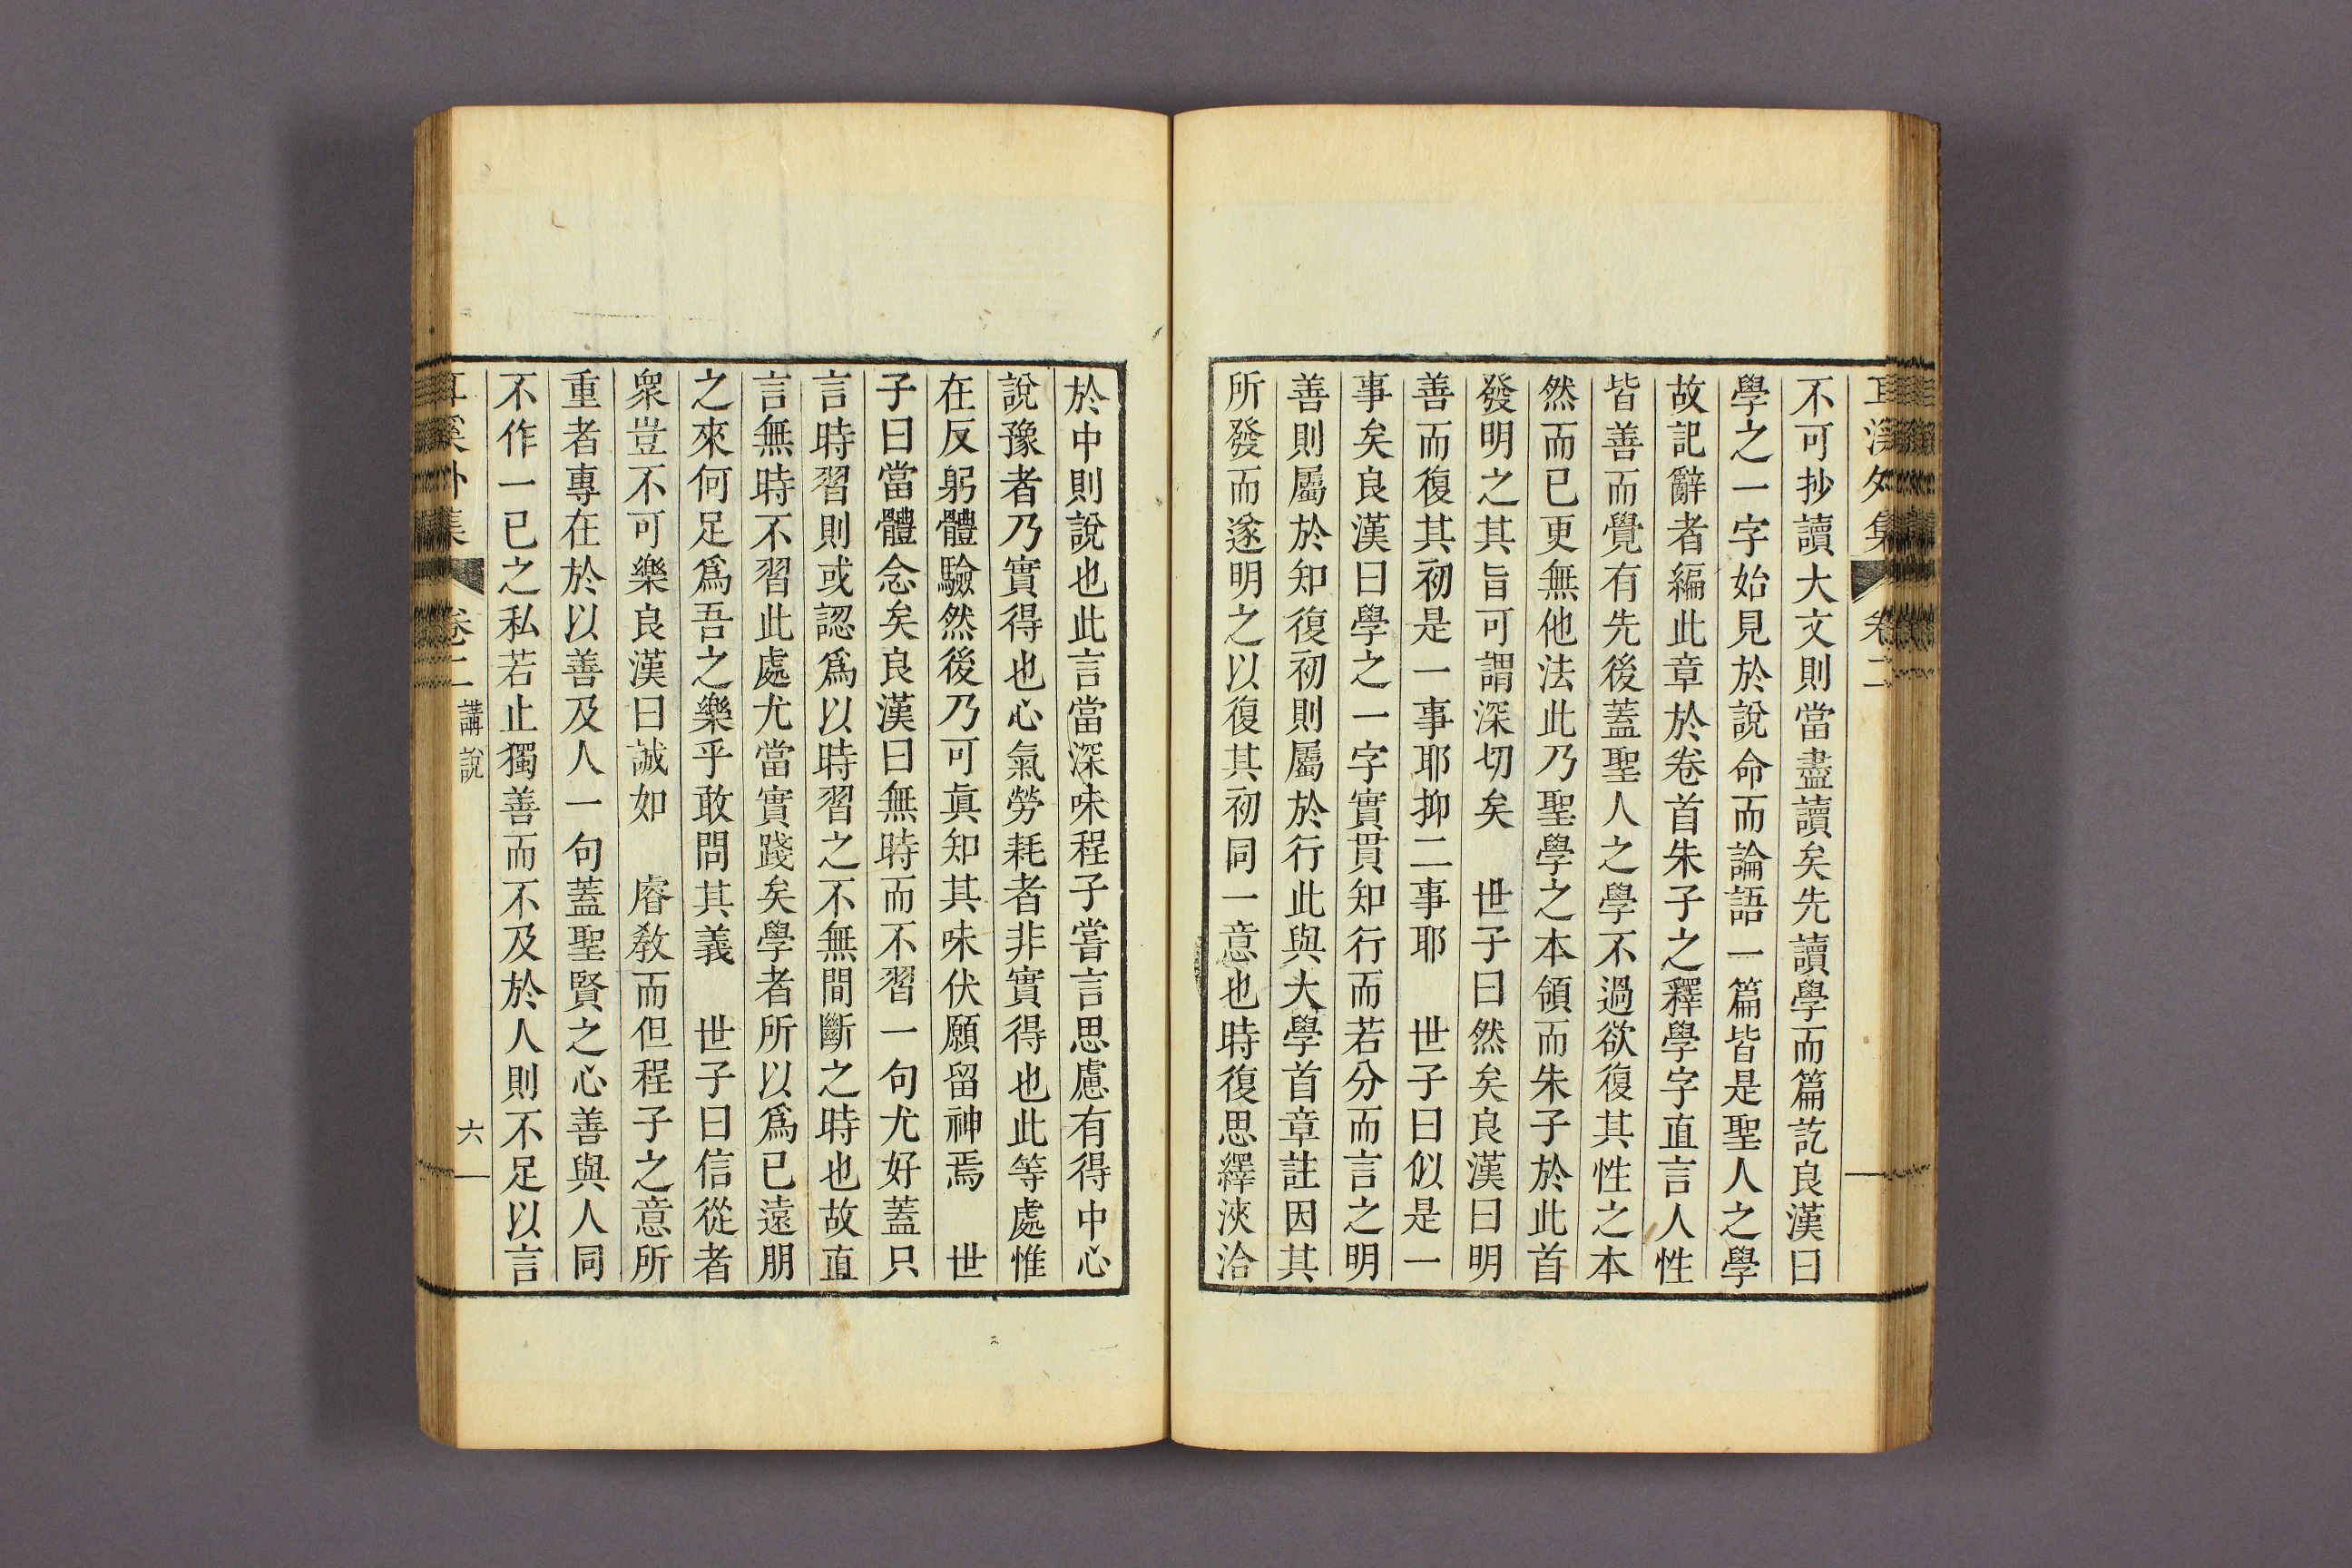 耳溪外集 卷二
不可抄讀大文則當盡讀矣先讀學而篇訖良漢曰
學之一字始見於說命而論語一篇皆是聖人之學
故記辭者編此章於卷首朱子之釋學字直言人性
皆善而覺有先後蓋聖人之學不過欲復其性之本
然而已更無他法此乃聖學之本領而朱子於此首
發明之其旨可謂深切矣　世子曰然矣良漢曰明
善而復其初是一事耶抑二事耶　世子曰似是一
事矣良漢曰學之一字實貫知行而若分而言之明
善則屬於知復初則屬於行此與大學首章註因其
所發而遂明之以復其初同一意也時復思繹浹洽
於中則說也此言當深味程子嘗言思慮有得中心
說豫者乃實得也心氣勞耗者非實得也此等處惟
在反躬體驗然後乃可眞知其味伏願留神焉　世
子曰當體念矣良漢曰無時而不習一句尤好蓋只
言時習則或認爲以時習之不無間斷之時也故直
言無時不習此處尤當實踐矣學者所以爲已遠朋
之來何足爲吾之樂乎敢問其義　世子曰信從者
衆豈不可樂良漢曰誠如　睿敎而但程子之意所
重者專在於以善及人一句蓋聖賢之心善與人同
不作一已之私若止獨善而不及於人則不足以言
耳溪外集 卷二 講說 六